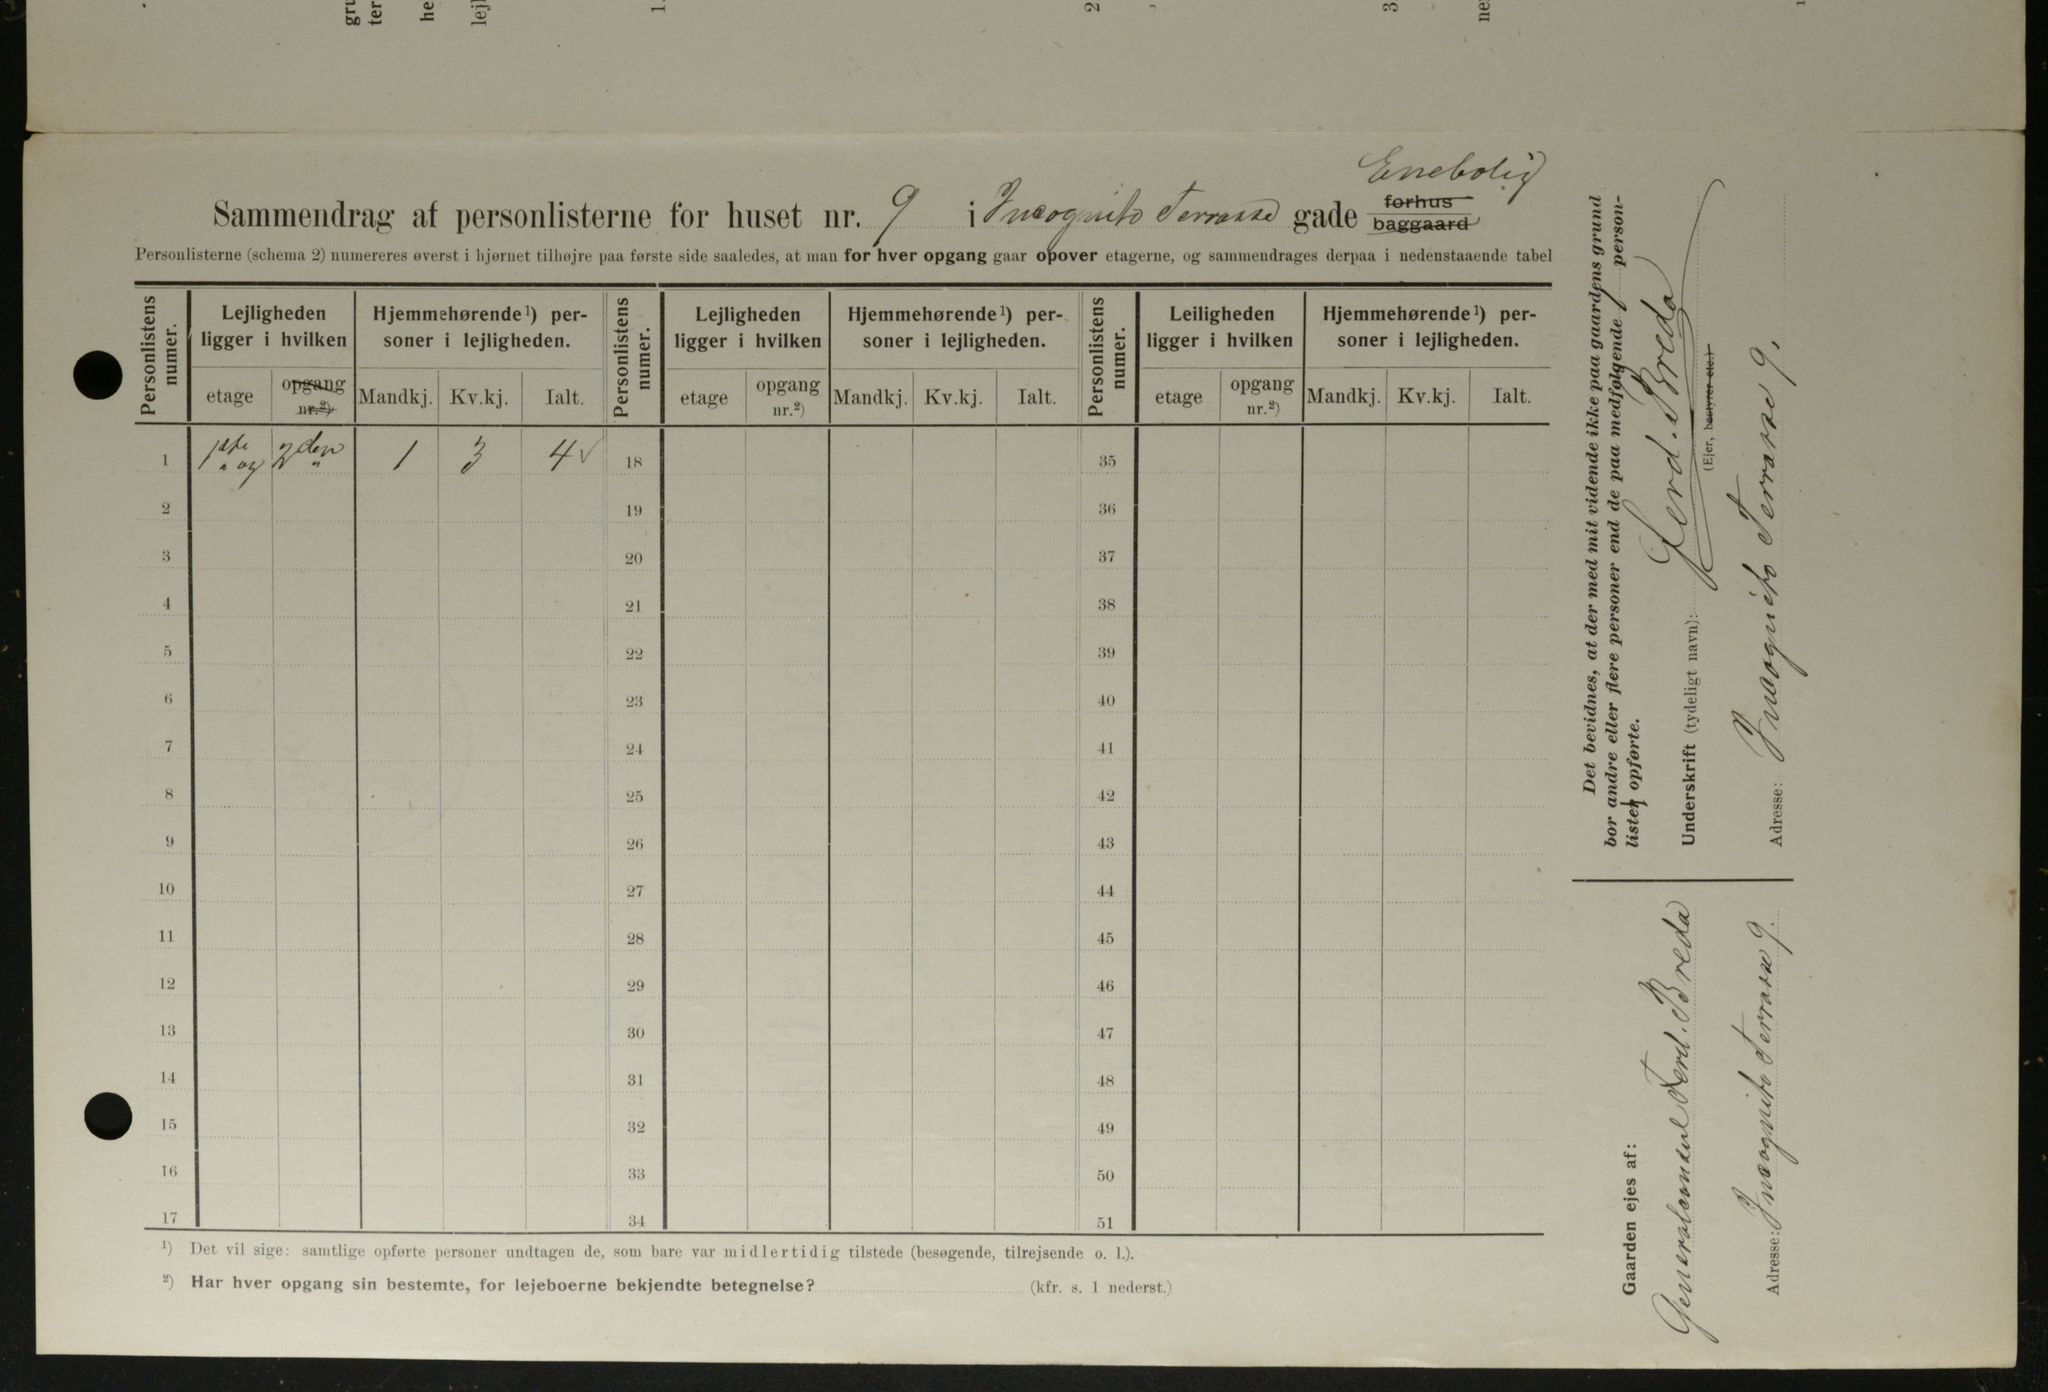 Enebolig
Sammendrag af personlisterne for huset nr. 9 i Incognito Terrasse gade forhus baggaard
Personlisterne (schema 2) numereres øverst i hjørnet tilhøjre paa første side saaledes, at man for hver opgang gaar opover etagerne, og sammendrages derpaa i nedenstaaende tabel
Personlistens numer. Lejligheden ligger i hvilken Hjemmehørende¹) personer i lejligheden. Personlistens numer. Lejligheden ligger i hvilken Hjemmehørende¹) personer i lejligheden. Personlistens numer. Leiligheden ligger i hvilken Hjemmehørende¹) personer i lejligheden.
etage opgang nr.²) Mandkj. Kv.kj. Ialt. etage opgang nr.²) Mandkj. Kv.kj. Ialt. etage opgang nr.²) Mandkj. Kv.kj. Ialt.
1 1ste og 2den 1 3 4 18 35
2 19 36
3 20 37
4 21 38
5 22 39
6 23 40
7 24 41
8 25 42
9 26 43
10 27 44
11 28 45
12 29 46
13 30 47
14 31 48
15 32 49
16 33 50
17 34 51
¹) Det vil sige: samtlige opførte personer undtagen de, som bare var midlertidig tilstede (besøgende, tilrejsende o. l.).
²) Har hver opgang sin bestemte, for lejeboerne bekjendte betegnelse? (kfr. s. 1 nederst.)
Det bevidnes, at der med mit vidende ikke paa gaardens grund
bor andre eller flere personer end de paa medfølgende person-
listen opførte.
Underskrift (tydeligt navn): Ferd. Breda
(Ejer, bestyrer etc.)
Adresse: Incognito Terrasse 9.
Gaarden ejes af:
Generalconsul Ferd. Breda
Adresse: Incognito Terrasse 9.